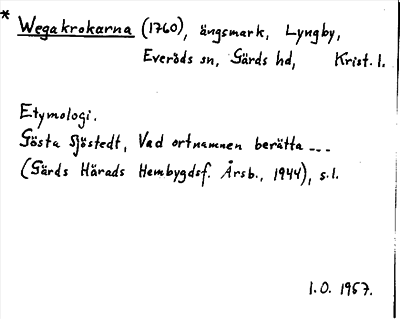 * Wegakrokarna (1760), ängsmark, Lyngby,
Everöds sn, Gärds hd, Krist. l.
Etymologi.
Gösta Sjöstedt, Vad ortnamnen berätta ---
(Gärds Härads Hembygdsf. Årsb., 1944), s.1.
I.O. 1957.